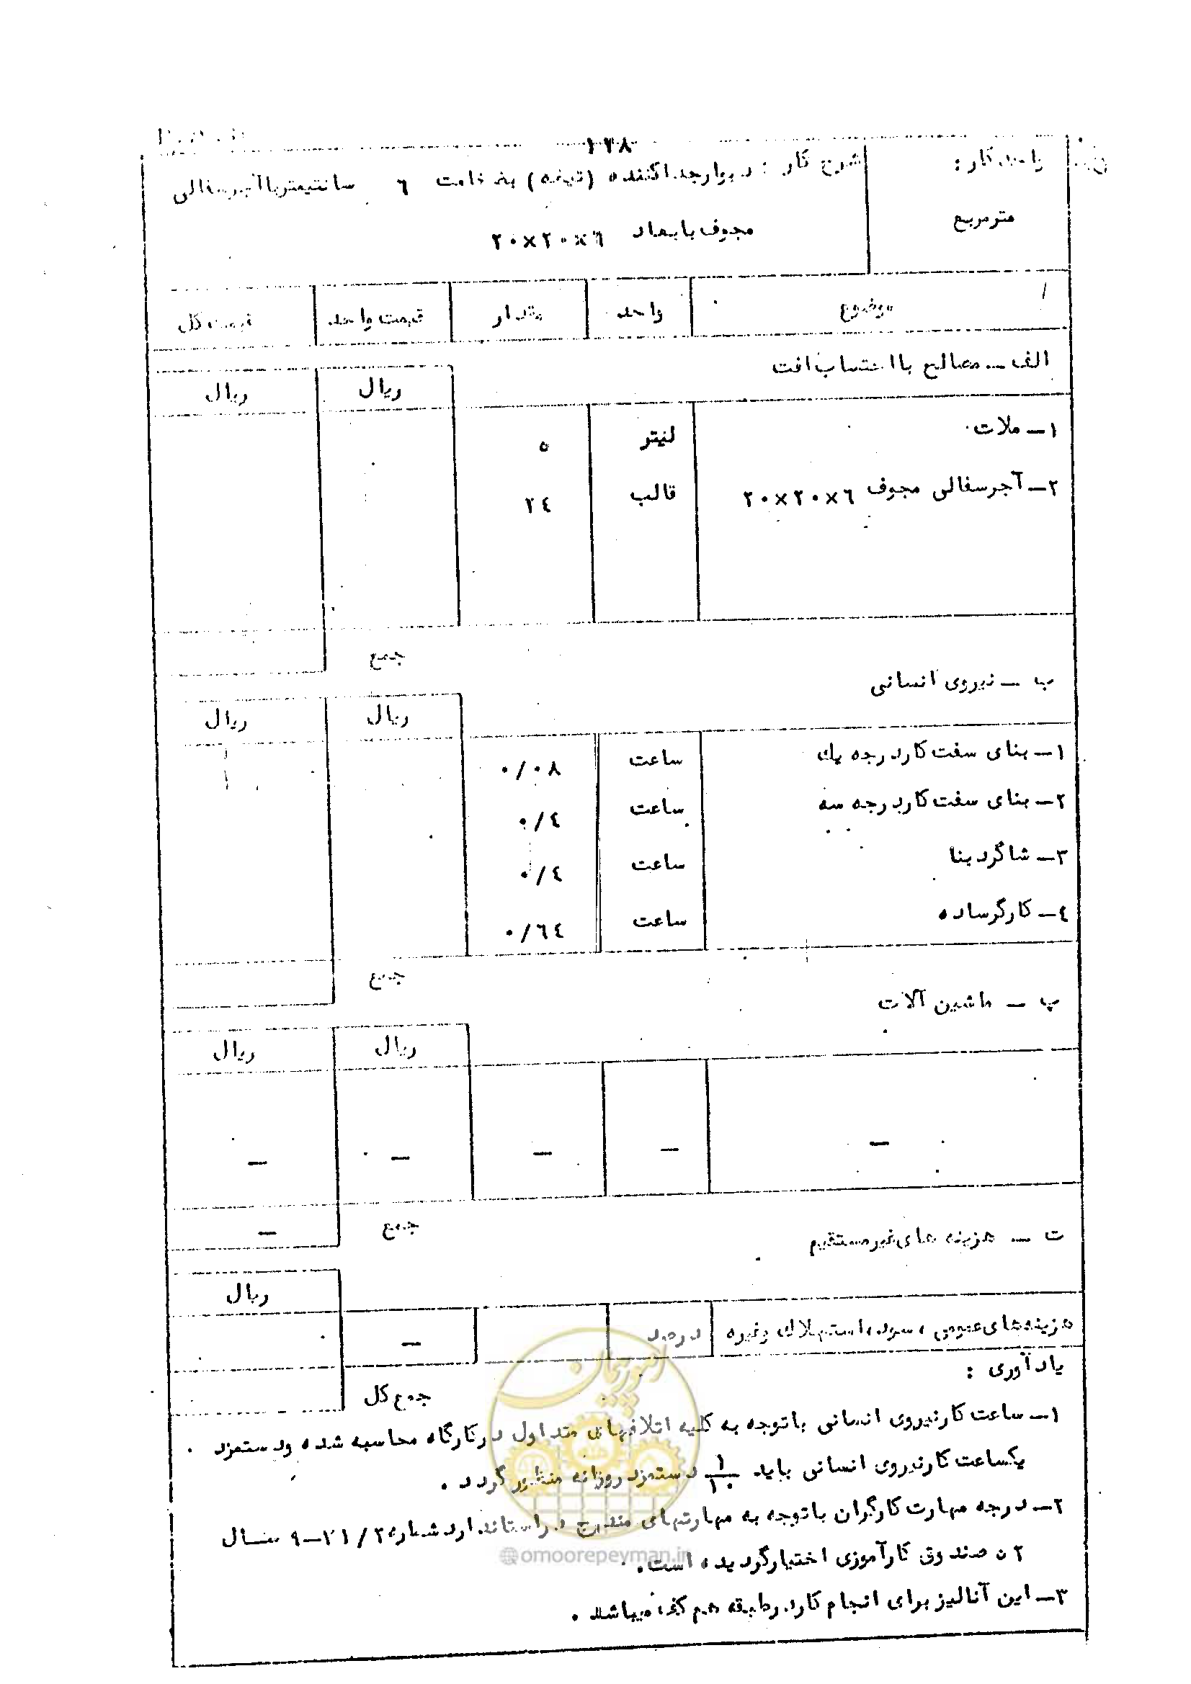 ۱۲۸
واحد کار :
شرح کار : دیوار جدا کننده (تیغه) بضخامت ٦ سانتیمتر با آجر سفالی
مترمربع
مجوف با بعاد ٦×۲۰×۲۰
موضوع واحد مقدار قیمت واحد قیمت کل
الف ــ مصالح با احتساب افت
ریال ریال
۱ــ ملات لیتر ٥
۲ــ آجر سفالی مجوف ٦×۲۰×۲۰ قالب ۲٤
جمع
ب ــ نیروی انسانی
ریال ریال
۱ــ بنای سفت کار درجه یك ساعت ۰/۰۸
۲ــ بنای سفت کار درجه سه ساعت ۰/٤
۳ــ شاگرد بنا ساعت ۰/٤
٤ــ کارگر ساده ساعت ۰/٦٤
جمع
پ ــ ماشین آلات
ریال ریال
ــ ــ ــ ــ ــ
جمع ــ
ت ــ هزینه های غیر مستقیم
ریال
هزینه های عمومی ، سود ، استهلاك وغیره درصد ــ
جمع کل
یاد آوری :
۱ــ ساعت کار نیروی انسانی با توجه به کلیه اتلافهای متداول در کارگاه محاسبه شده و دستمزد
یکساعت کار نیروی انسانی باید ۱/۱۰ دستمزد روزانه منظور گردد .
۲ــ درجه مهارت کارگران با توجه به مهارتهای مندرج در استاندارد شماره ۹ــ۲۱/۲ سال
۲۰ صندوق کارآموزی اختیار گردیده است .
۳ــ این آنالیز برای انجام کار در طبقه هم کف میباشد .
امور پیمان
@omoorepeyman.ir